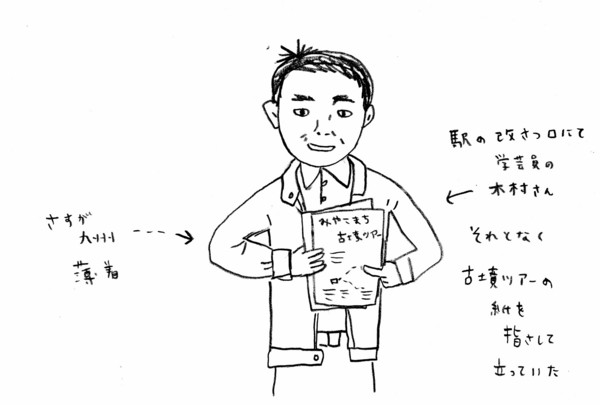 さすが
九州
薄着
みやこまち
古墳ツアー
駅の改さつ口にて
学芸員の
木村さん
それとなく
古墳ツアーの
紙を
指さして
立っていた